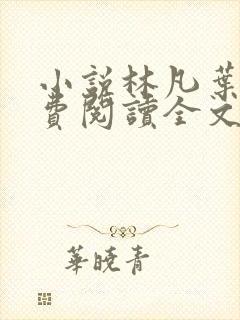 小說林凡葉
費閱讀全文
華曉青